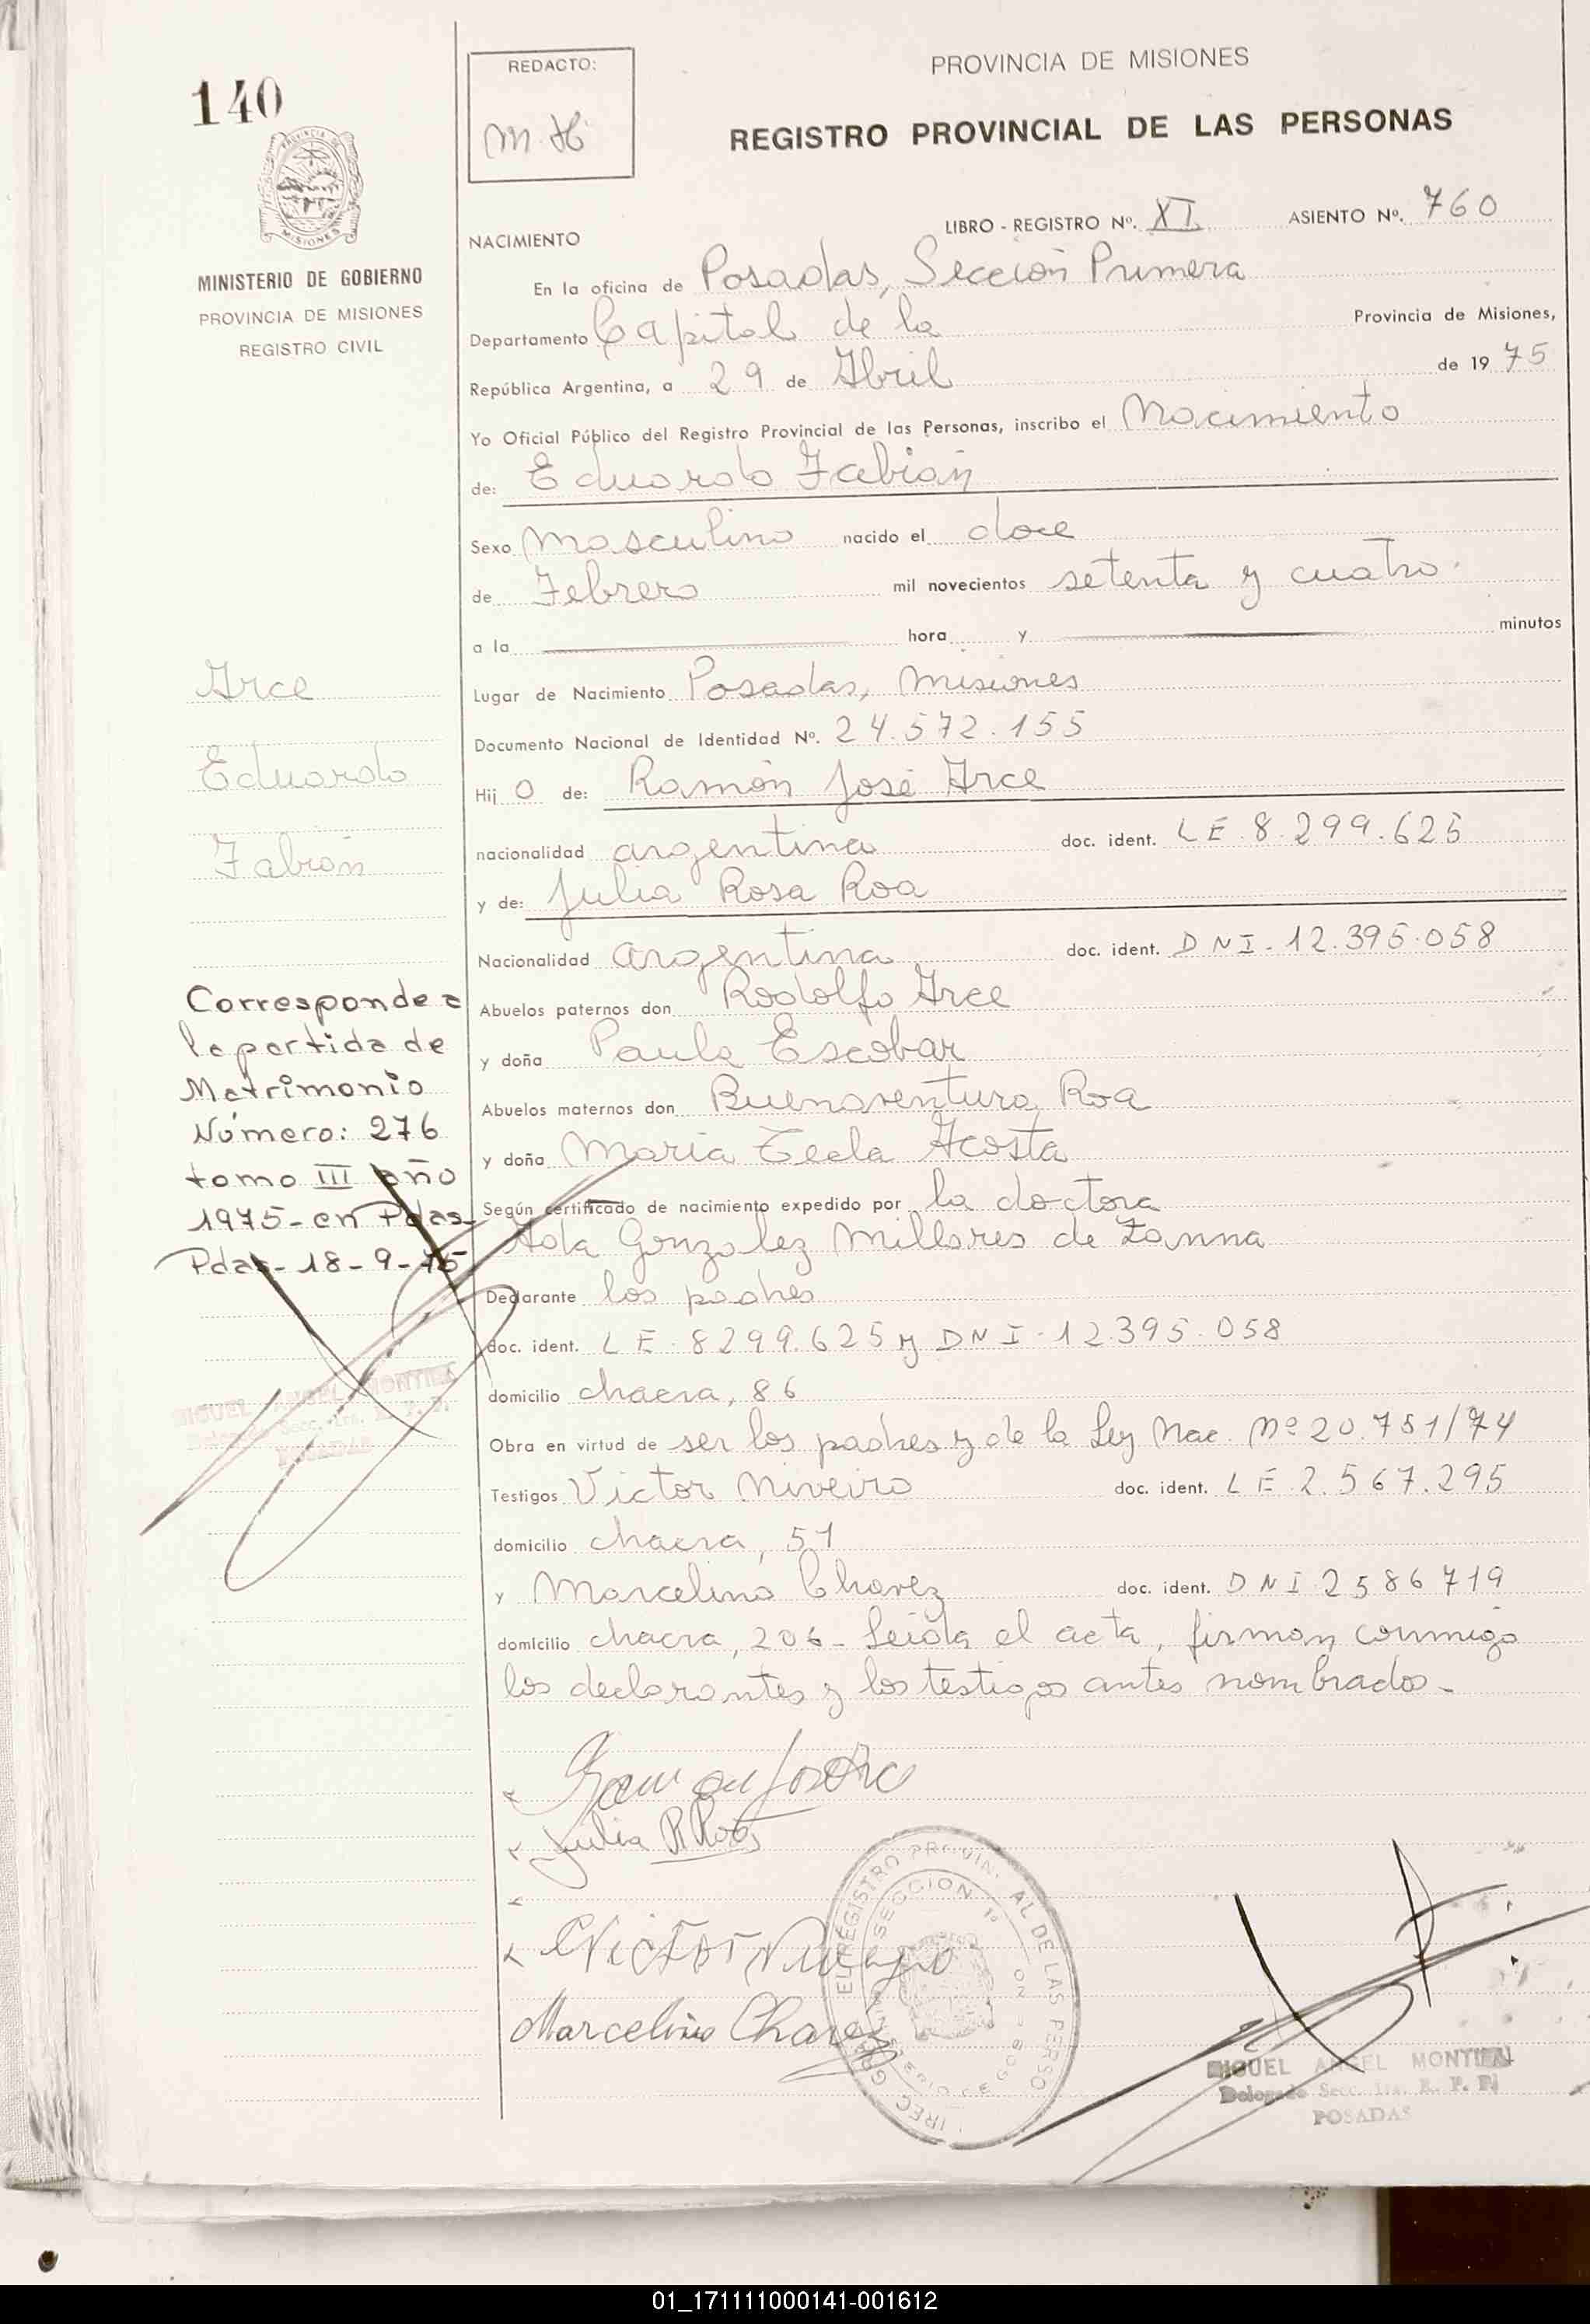 140
REDACTO:
M.H.
PROVINCIA DE MISIONES
REGISTRO PROVINCIAL DE LAS PERSONAS
MISIONES
MINISTERIO DE GOBIERNO
PROVINCIA DE MISIONES
REGISTRO CIVIL
LIBRO - REGISTRO Nº. XI ASIENTO Nº. 760
NACIMIENTO
En la oficina de Posadas, Sección Primera
Departamento Capital de la Provincia de Misiones,
República Argentina, a 29 de Abril de 1975
Yo Oficial Público del Registro Provincial de las Personas, inscribo el Nacimiento
de: Eduardo Fabián
Sexo Masculino nacido el doce
de Febrero mil novecientos setenta y cuatro.
a la hora y minutos
Lugar de Nacimiento Posadas, Misiones
Documento Nacional de Identidad Nº. 24.572.155
Hijo de: Ramón José Arce
nacionalidad argentina doc. ident. LE.8.299.625
y de: Julia Rosa Roa
Nacionalidad argentina doc. ident. DNI-12.395.058
Abuelos paternos don Rodolfo Arce
y doña Paula Escobar
Abuelos maternos don Buenaventura Roa
y doña María Tecla Acosta
Según certificado de nacimiento expedido por la doctora
Ada Gonzalez Millares de Zanna
Declarante los padres
doc. ident. LE.8299.625 y DNI-12.395.058
domicilio chacra, 86
Obra en virtud de ser los padres y de la Ley Nac. Nº 20.751/74
Testigos Victor Niveiro doc. ident. LE 2.567.295
domicilio chacra, 51
y Marcelino Chavez doc. ident. DNI 2586719
domicilio chacra, 206- Leída el acta, firman conmigo
los declarantes y los testigos antes nombrados-
Arce
Eduardo
Fabián
Corresponde a
la partida de
Matrimonio
Número: 276
tomo III año
1975- en Pdas-
Pdas- 18-9-75
MIGUEL ANGEL MONTIEL
Delegado Secc. 1ra. R. P. P.
POSADAS
Ramon Jose Arce
Julia R Roa
Victor Niveyro
Marcelino Chavez
REGISTRO PROVINCIAL DE LAS PERSO
SECCION 1ª
MIGUEL ANGEL MONTIEL
Delegado Secc. 1ra. R. P. P.
POSADAS
01_171111000141-001612